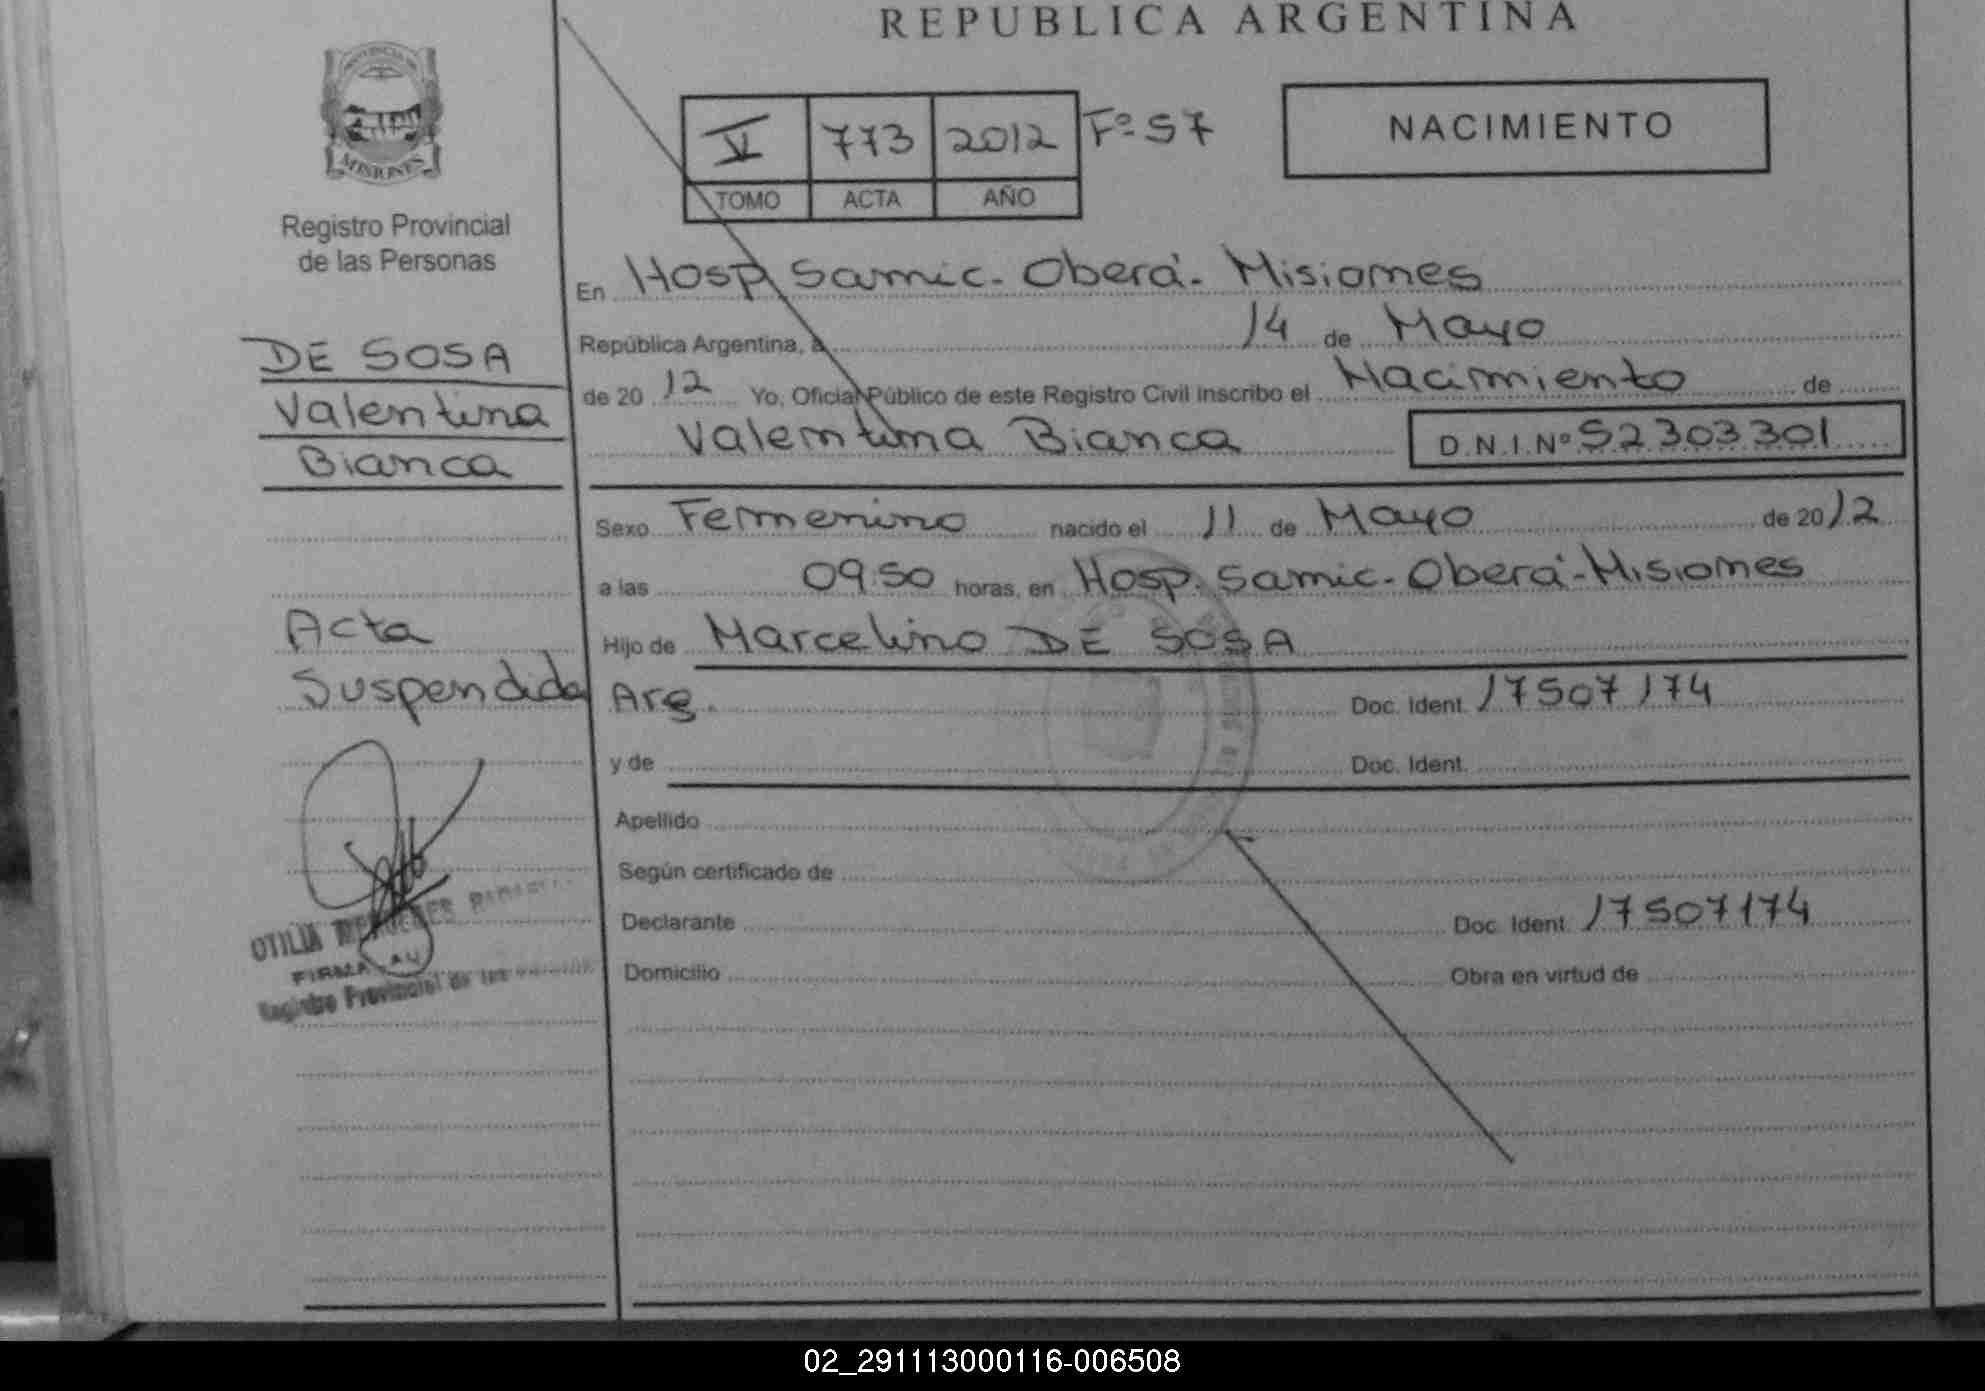 REPUBLICA ARGENTINA
PROVINCIA DE
MISIONES
Registro Provincial
de las Personas
V 773 2012 Fº 57
TOMO ACTA AÑO
NACIMIENTO
DE SOSA
Valentina
Bianca
Acta
Suspendida
OTILIA
FIRMA
Registro Provincial de las
En Hosp Samic - Oberá - Misiones
República Argentina, a 14 de Mayo
de 20 12 Yo, Oficial Público de este Registro Civil inscribo el Nacimiento de
Valentina Bianca D.N.I.Nº 52303301
Sexo Femenino nacido el 11 de Mayo de 20 12
a las 09:50 horas, en Hosp. Samic - Oberá - Misiones
Hijo de Marcelino DE SOSA
Arg. Doc. Ident. 17507174
y de Doc. Ident.
Apellido
Según certificado de
Declarante Doc. Ident. 17507174
Domicilio Obra en virtud de
02_291113000116-006508